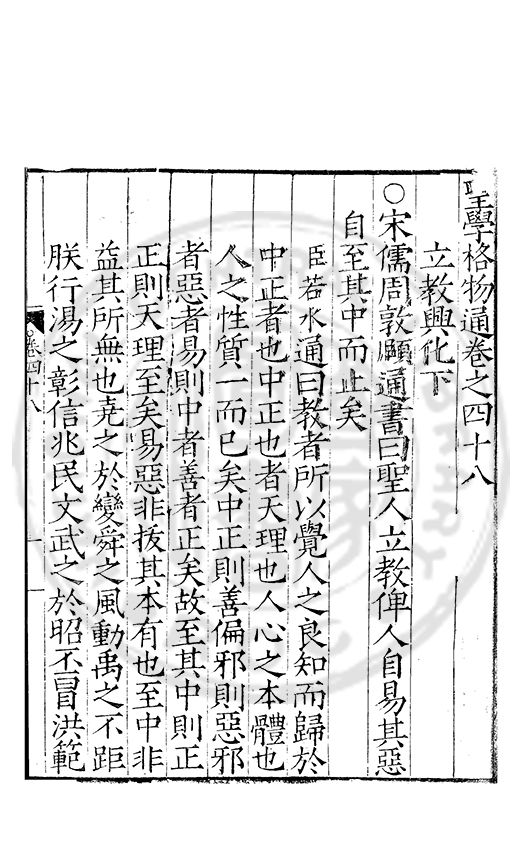 聖學格物通卷之四十八
立教興化下
○宋儒周敦頤通書曰聖人立教俾人自易其惡
自至其中而止矣
臣若水通曰教者所以覺人之良知而歸於
中正者也中正也者天理也人心之本體也
人之性質一而已矣中正則善偏邪則惡邪
者惡者易則中者善者正矣故至其中則正
正則天理至矣易惡非拔其本有也至中非
益其所無也堯之於變舜之風動禹之不距
朕行湯之彰信兆民文武之於昭丕冒洪範
卷四十八
一